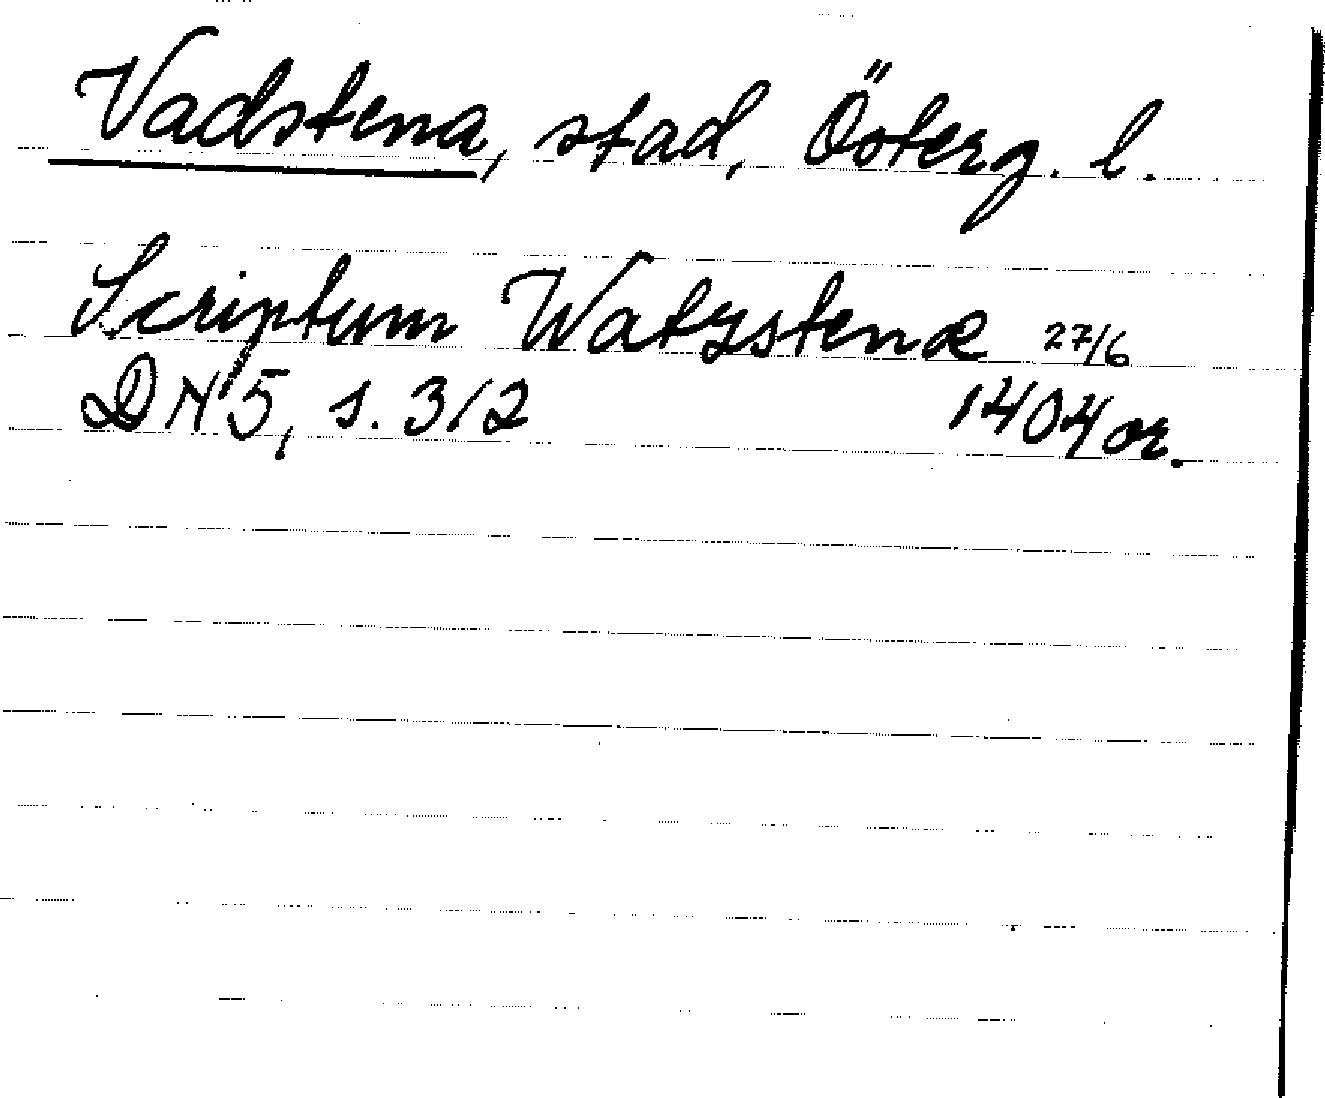 Vadstena, stad, Österg. l.
Scriptum Watzstenæ 27/6
DN 5, s. 312 1404 or.